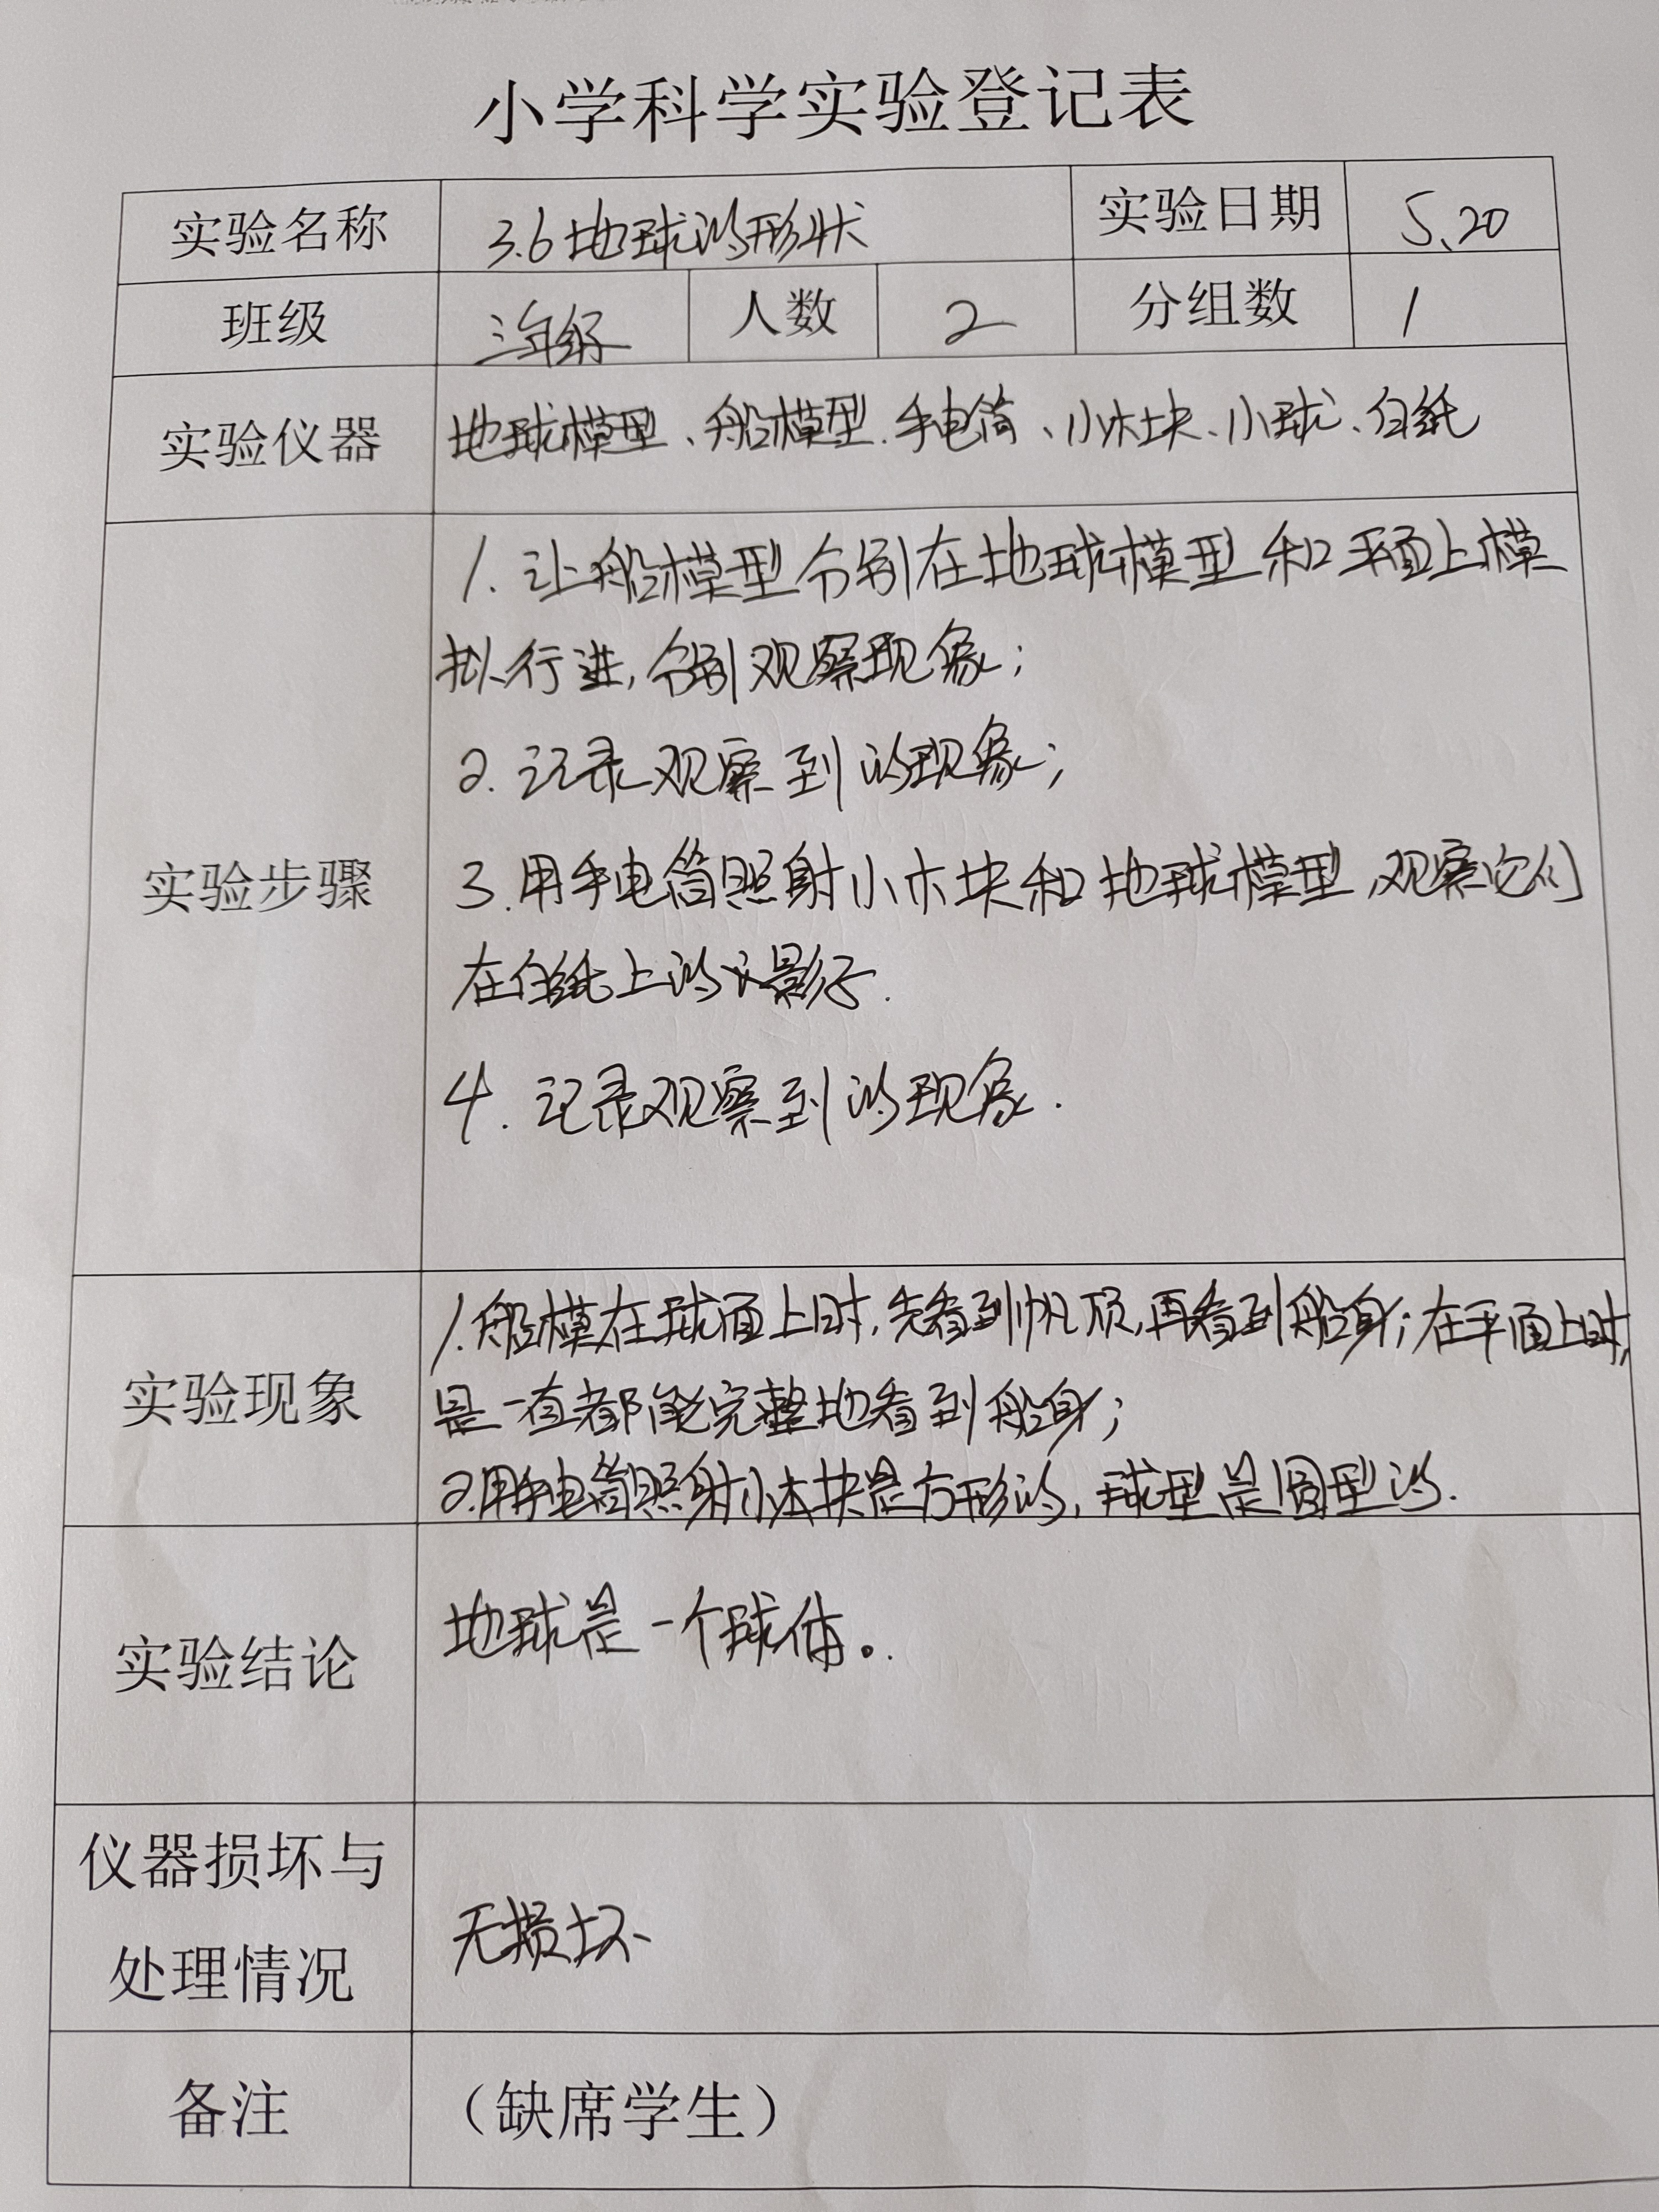 小学科学实验登记表
实验名称 3.6地球的形状 实验日期 5.20
班级 三年级 人数 2 分组数 1
实验仪器 地球模型、船模型、手电筒、小木块、小球、白纸
实验步骤
1. 让船模型分别在地球模型和平面上模
拟行进,分别观察现象;
2. 记录观察到的现象;
3. 用手电筒照射小木块和地球模型,观察它们
在白纸上的影子.
4. 记录观察到的现象.
实验现象
1.船模在球面上时,先看到帆顶,再看到船身;在平面上时,
是一直都能完整地看到船身;
2.用手电筒照射小木块是方形的,球型是圆型的.
实验结论 地球是一个球体。
仪器损坏与
处理情况
无损坏
备注 (缺席学生)